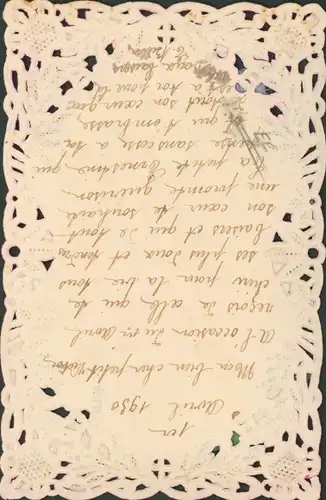 1er
Avril 1930
Mon bien cher petit Victor
A l'occasion du 1er Avril
reçois de celle que te
chéri pour la vie tous
ses plus doux et tendres
baisers et que de tout
son cœur te souhaite
une prompte guérison.
La petite Ernestine qui
pense sans cesse à toi
et qui t'embrasse
de tout son cœur qui
est à toi pour la
Doux baisers